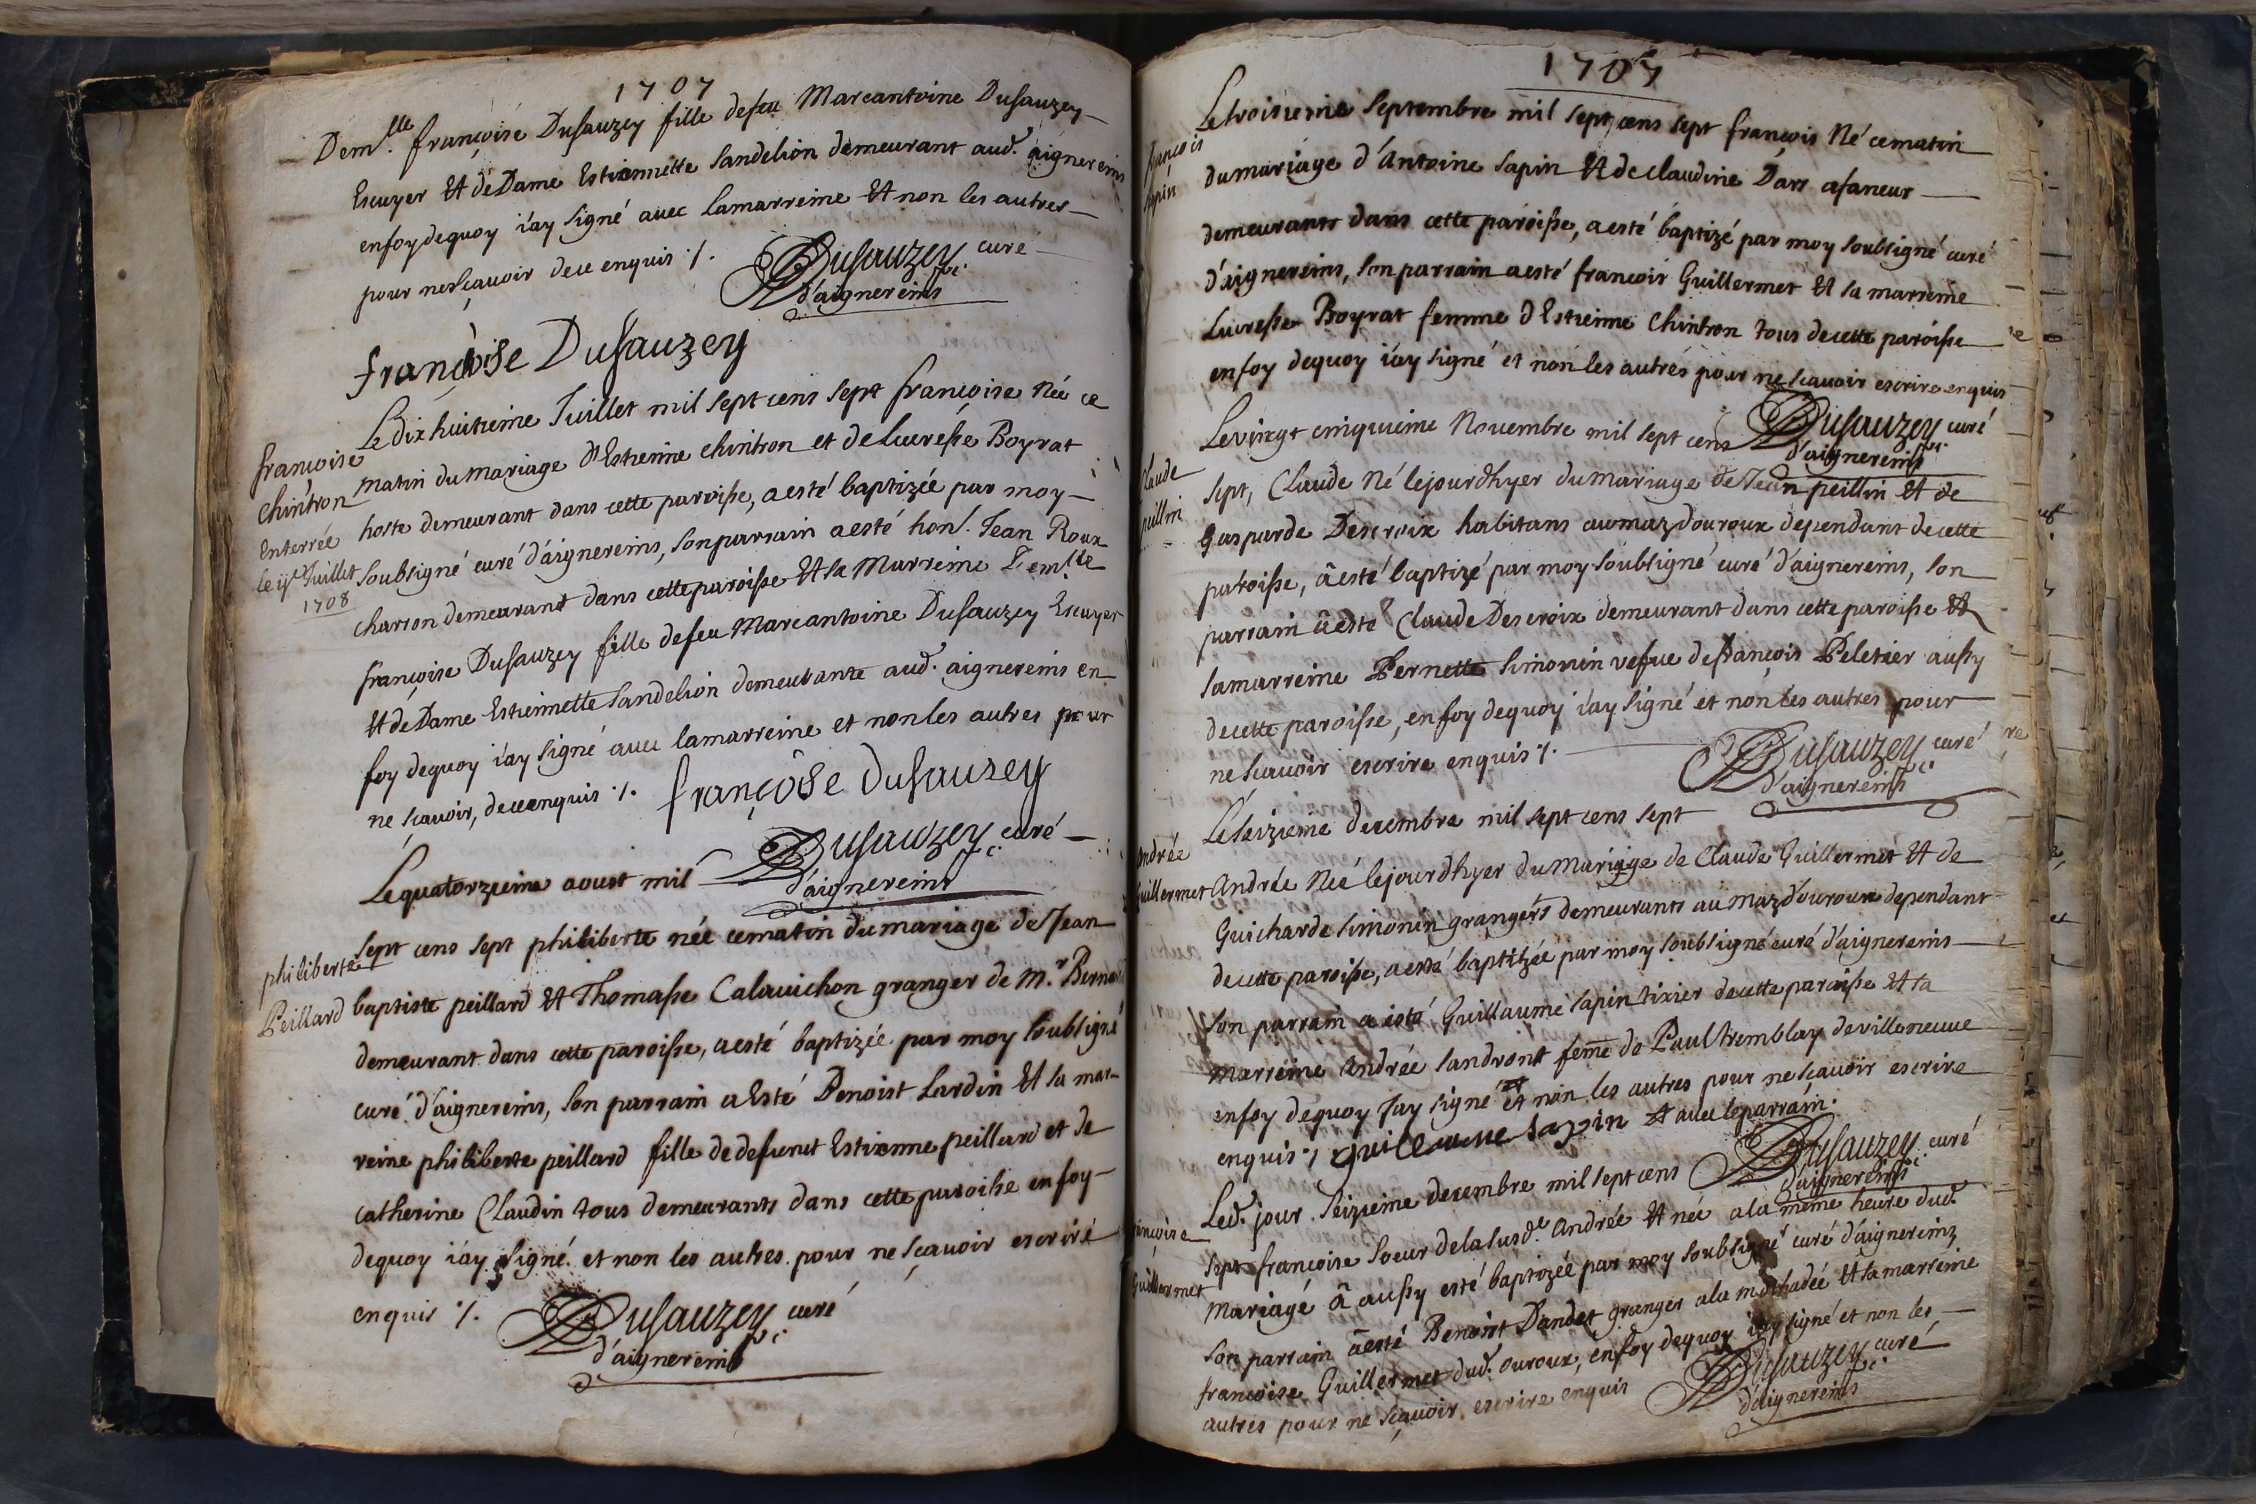 1707
Dem.lle françoise Dusauzey fille defeu Marcantoine Dusauzey
Escuyer Et de Dame Estiennette Sandelion demeurant aud. aignereins
enfoy dequoy i'ay signé avec lamarreine Et non les autres
pour nesçavoir dece enquis ·/.
Dusauzey curé
d'aignereins
françoise Dusauzey
françoise
chintron
Enterrée
Juillet
1708
Le dix huitieme Juillet mil sept cens sept françoise née ce
matin du mariage d'Estienne chintron et de Lucresse Boyrat
hoste demeurant dans cette paroisse, aesté baptizée par moy
soubsigné curé d'aignereins, son parrain aesté hon. Jean Roux
charron demeurant dans cette paroisse Et sa Marreine Demlle
françoise Dusauzey fille defeu Marcantoine Dusauzey Escuyer
Et de Dame Estiennette Sandelion demeurante aud. aignereins en
foy dequoy i'ay signé avec lamarreine et non les autres pour
ne scavoir, dece enquis ·/.
françôise dusausey
Dusauzey curé
d'aignereins
philiberte
Peillard
Le quatorzieme aoust mil
sept cens sept philiberte née cematin du mariage de Jean
baptiste peillard Et Thomasse Calavichon granger de Mr
demeurant dans cette paroisse, aesté baptizée par moy soubsigné
curé d'aignereins, son parrain aEsté Benoist Lardin Et sa mar-
reine philiberte peillard fille de defunct Estienne peillard et de
catherine Claudin tous demeurants dans cette paroisse en foy
dequoy i'ay signé et non les autres pour ne sçavoir escrire
enquis ·/.
Dusauzey curé
d'aignereins
1707
françois
sapin
Le troisieme septembre mil sept cens sept françois Né cematin
du mariage d'Antoine sapin Et de claudine Dars afaneur
demeurants dans cette paroisse, aesté baptizé par moy soubsigné curé
d'aignereins, son parrain aesté françois Guillermet Et sa marreine
Lucresse Boyrat femme d'Estienne Chintron tous decette paroisse
enfoy dequoy i'ay signé et non les autres pour ne scavoir escrire enquis
Dusauzey curé
d'aignereins
Claude
peillin
Le vingt cinquieme Novembre mil sept cens
sept, Claude Né lejourdhyer du mariage de Jean peillin Et de
Gasparde Descroix habitans aumaz douroux dependant decette
paroisse, â esté baptizé par moy soubsigné curé d'aignereins, son
parrain â esté Claude Descroix demeurant dans cette paroisse Et
sa marreine Pernette simonin vefue de françois Peletier aussy
decette paroisse, en foy dequoy i'ay signé et non les autres pour
ne scavoir escrire enquis ·/.
Dusauzey curé
d'aignereins
Andrée
Guillermet
Le seizieme decembre mil sept cens sept
Andrée Née lejourdhyer du mariage de Claude Guillermet Et de
Guicharde simonin grangers demeurants au maz d'ouroux dependant
decette paroisse, aesté baptizée par moy soubsigné curé d'aignereins
son parrain a esté Guillaume sapin tixier decette paroisse Et sa
marreine Andrée Landront feme de Paul tremblay devilleneuve
enfoy dequoy Jay signé et non les autres pour ne scavoir escrire
enquis ·/. guilleaume sapin Et avec leparrain.
Dusauzey curé
d'aignereins
françoise
Guillermet
Led. jour seizieme decembre mil sept cens
sept françoise soeur delasusd.e Andrée Et née ala même heure dud.
mariagé â aussy esté baptizée par moy soubsigné curé d'aignereins
son parrain âesté Benoist Dandet granger ala Et sa marreine
françoise Guillermet dud. ouroux, en foy dequoy i'ay signé et non les
autres pour ne sçavoir escrire enquis
Dusauzey curé
d'aignereins